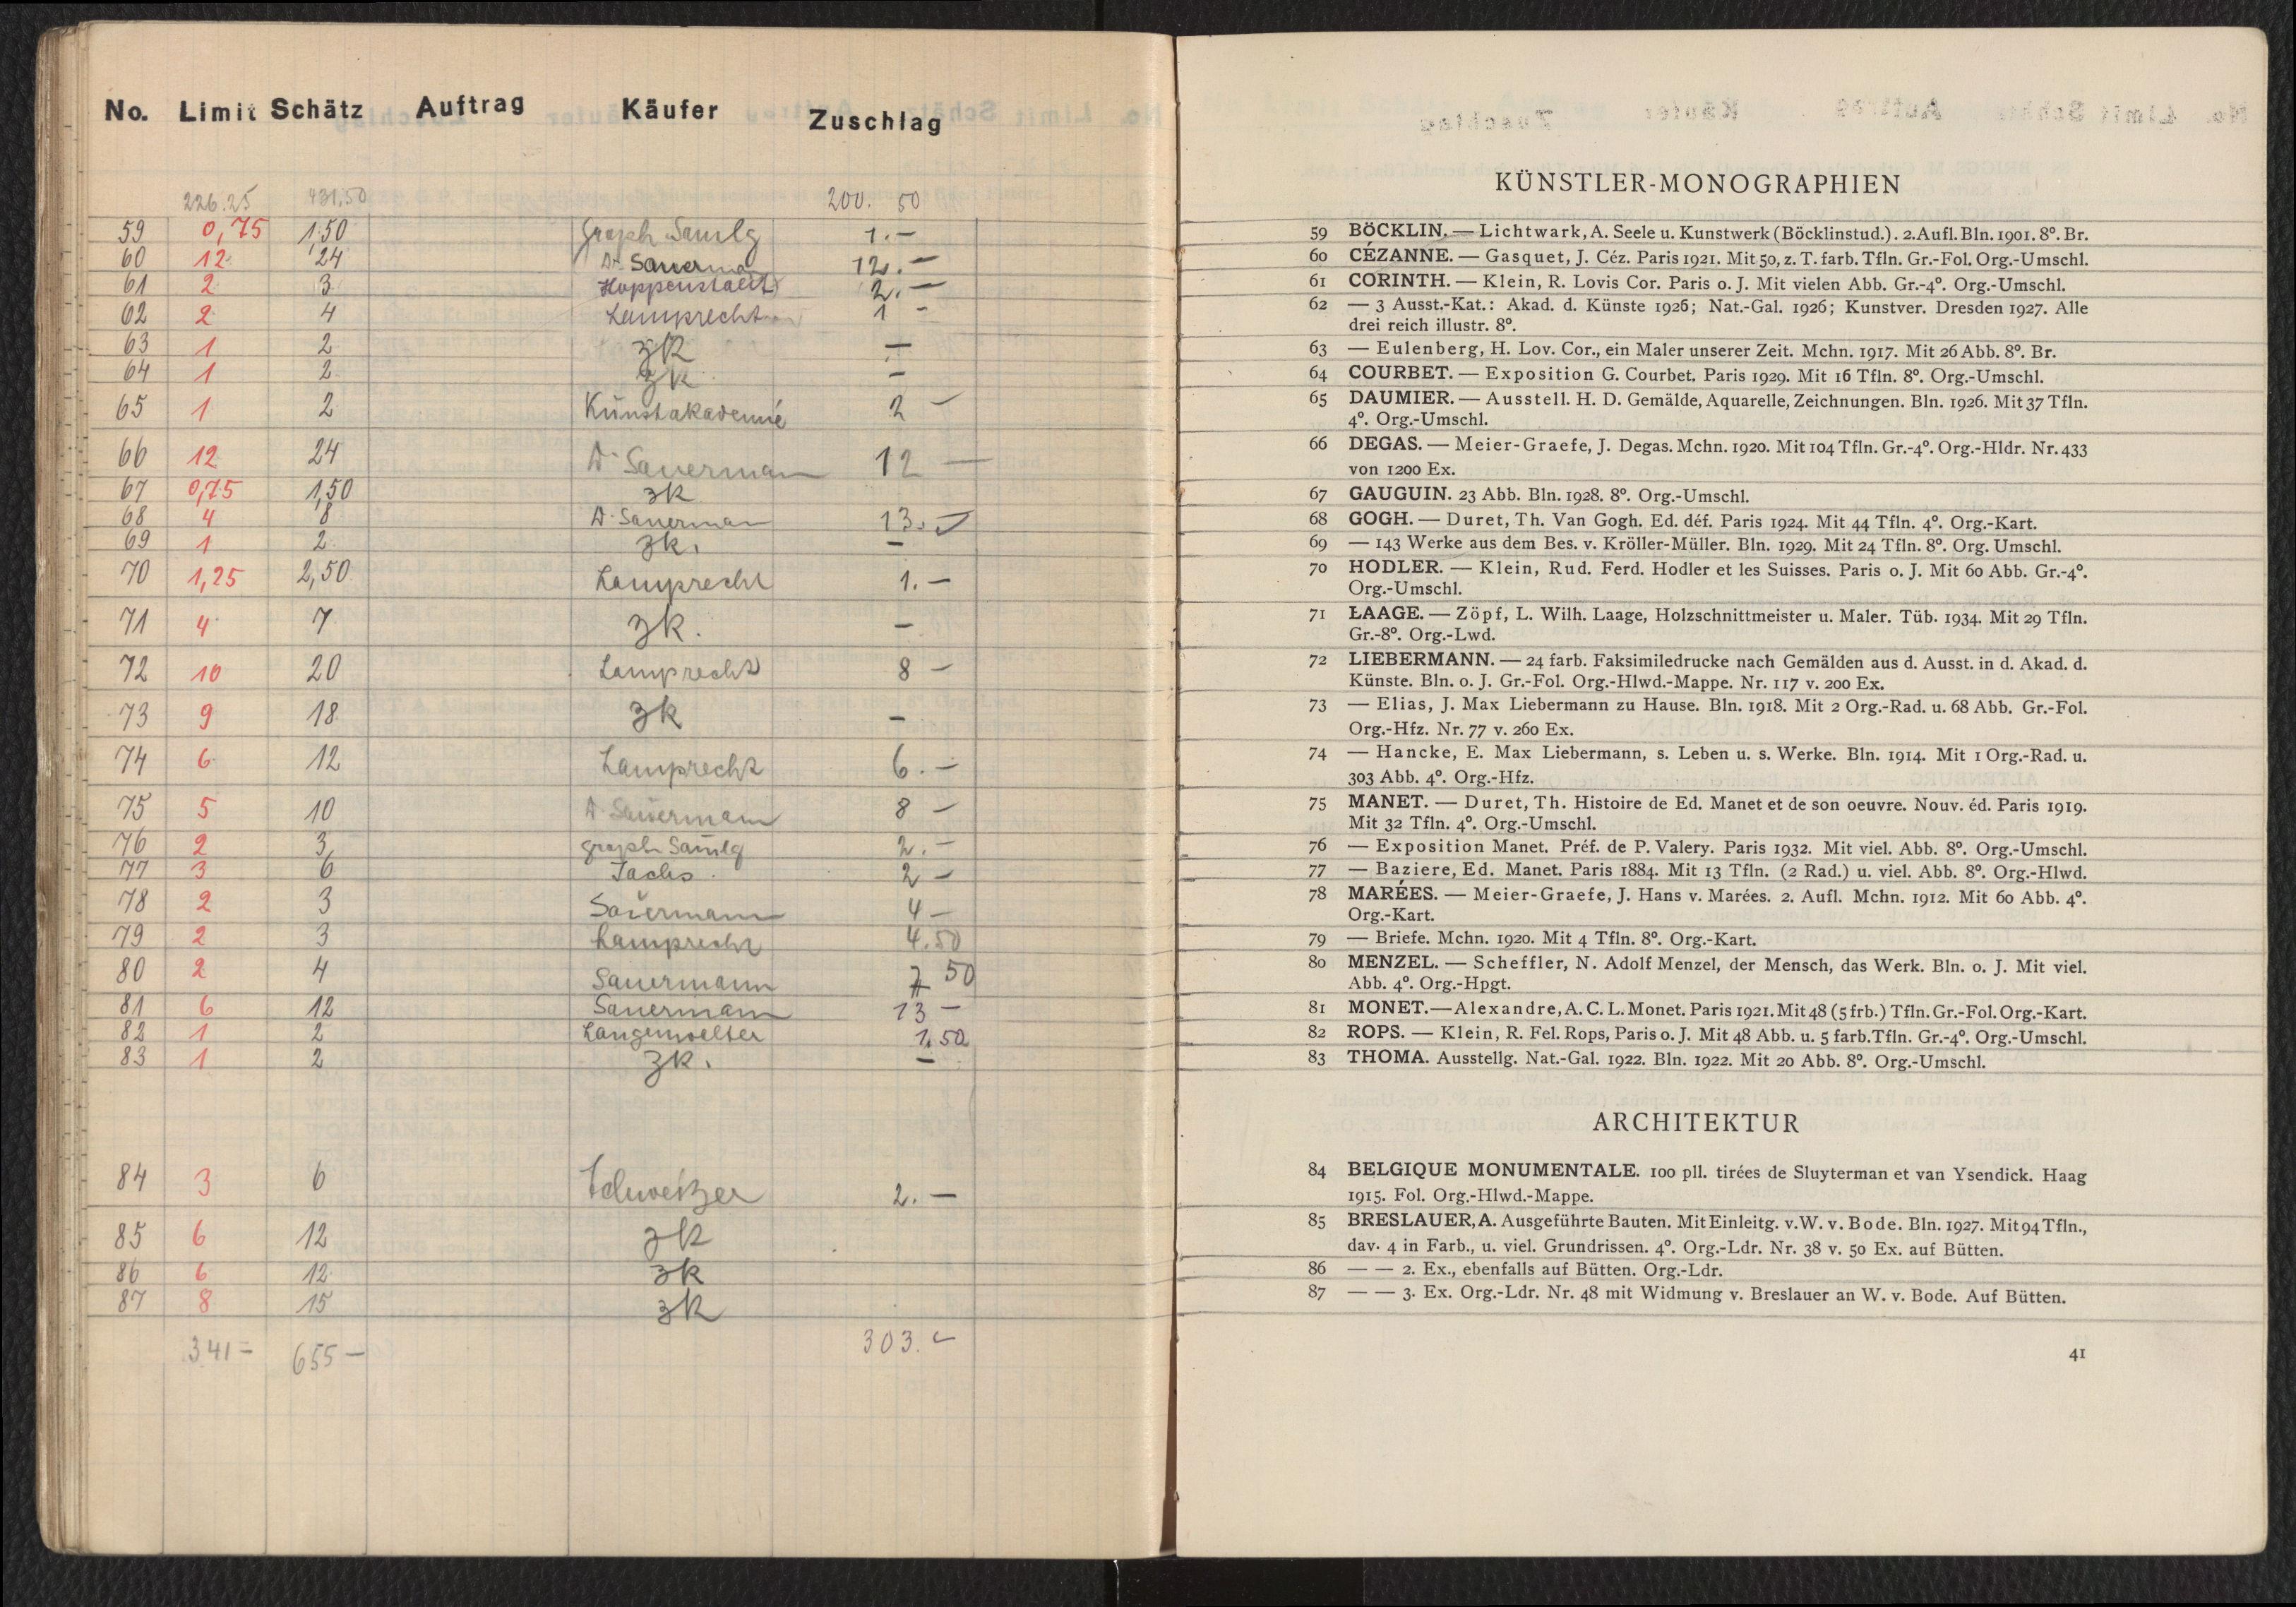 No. Limit Schätz Auftrag Käufer Zuschlag
226.25 431,50 200. 50
59 0,75 1.50 graph Samlg 1.—
60 12 24 Dr Sauerman 12.—
61 2 3 Hoppenstaedt 2.—
62 2 4 Lamprecht 1 -
63 1 2 zk —
64 1 2 zk —
65 1 2 Kunstakademie 2 —
66 12 24 Dr Sauerman 12 —
67 0,75 1,50 zk
68 4 8 Dr Sauerman 13.—
69 1 2 zk. —
70 1,25 2,50 Lamprecht 1.—
71 4 7 zk. —
72 10 20 Lamprecht 8 —
73 9 18 zk —
74 6 12 Lamprecht 6.—
75 5 10 Dr Sauermann 8 —
76 2 3 graph Samlg 2.—
77 3 6 Sachs 2 —
78 2 3 Sauermann 4 —
79 2 3 Lamprecht 4.50
80 2 4 Sauermann 7 50
81 6 12 Sauermann 13 —
82 1 2 1.50
83 1 2 zk. —
84 3 6 Schweitzer 2.—
85 6 12 zk
86 6 12 zk
87 8 15 zk
341 — 655 — 303.—
KÜNSTLER-MONOGRAPHIEN
59 BÖCKLIN. — Lichtwark, A. Seele u. Kunstwerk (Böcklinstud.). 2. Aufl. Bln. 1901. 8°. Br.
60 CÉZANNE. — Gasquet, J. Céz. Paris 1921. Mit 50, z. T. farb. Tfln. Gr.-Fol. Org.-Umschl.
61 CORINTH. — Klein, R. Lovis Cor. Paris o. J. Mit vielen Abb. Gr.-4°. Org.-Umschl.
62 — 3 Ausst.-Kat.: Akad. d. Künste 1926; Nat.-Gal. 1926; Kunstver. Dresden 1927. Alle
drei reich illustr. 8°.
63 — Eulenberg, H. Lov. Cor., ein Maler unserer Zeit. Mchn. 1917. Mit 26 Abb. 8°. Br.
64 COURBET. — Exposition G. Courbet. Paris 1929. Mit 16 Tfln. 8°. Org.-Umschl.
65 DAUMIER. — Ausstell. H. D. Gemälde, Aquarelle, Zeichnungen. Bln. 1926. Mit 37 Tfln.
4°. Org.-Umschl.
66 DEGAS. — Meier-Graefe, J. Degas. Mchn. 1920. Mit 104 Tfln. Gr.-4°. Org.-Hldr. Nr. 433
von 1200 Ex.
67 GAUGUIN. 23 Abb. Bln. 1928. 8°. Org.-Umschl.
68 GOGH. — Duret, Th. Van Gogh. Ed. déf. Paris 1924. Mit 44 Tfln. 4°. Org.-Kart.
69 — 143 Werke aus dem Bes. v. Kröller-Müller. Bln. 1929. Mit 24 Tfln. 8°. Org. Umschl.
70 HODLER. — Klein, Rud. Ferd. Hodler et les Suisses. Paris o. J. Mit 60 Abb. Gr.-4°.
Org.-Umschl.
71 LAAGE. — Zöpf, L. Wilh. Laage, Holzschnittmeister u. Maler. Tüb. 1934. Mit 29 Tfln.
Gr.-8°. Org.-Lwd.
72 LIEBERMANN. — 24 farb. Faksimiledrucke nach Gemälden aus d. Ausst. in d. Akad. d.
Künste. Bln. o. J. Gr.-Fol. Org.-Hlwd.-Mappe. Nr. 117 v. 200 Ex.
73 — Elias, J. Max Liebermann zu Hause. Bln. 1918. Mit 2 Org.-Rad. u. 68 Abb. Gr.-Fol.
Org.-Hfz. Nr. 77 v. 260 Ex.
74 — Hancke, E. Max Liebermann, s. Leben u. s. Werke. Bln. 1914. Mit 1 Org.-Rad. u.
303 Abb. 4°. Org.-Hfz.
75 MANET. — Duret, Th. Histoire de Ed. Manet et de son oeuvre. Nouv. éd. Paris 1919.
Mit 32 Tfln. 4°. Org.-Umschl.
76 — Exposition Manet. Préf. de P. Valery. Paris 1932. Mit viel. Abb. 8°. Org.-Umschl.
77 — Baziere, Ed. Manet. Paris 1884. Mit 13 Tfln. (2 Rad.) u. viel. Abb. 8°. Org.-Hlwd.
78 MARÉES. — Meier-Graefe, J. Hans v. Marées. 2. Aufl. Mchn. 1912. Mit 60 Abb. 4°.
Org.-Kart.
79 — Briefe. Mchn. 1920. Mit 4 Tfln. 8°. Org.-Kart.
80 MENZEL. — Scheffler, N. Adolf Menzel, der Mensch, das Werk. Bln. o. J. Mit viel.
Abb. 4°. Org.-Hpgt.
81 MONET. — Alexandre, A. C. L. Monet. Paris 1921. Mit 48 (5 frb.) Tfln. Gr.-Fol. Org.-Kart.
82 ROPS. — Klein, R. Fel. Rops, Paris o. J. Mit 48 Abb. u. 5 farb. Tfln. Gr.-4°. Org.-Umschl.
83 THOMA. Ausstellg. Nat.-Gal. 1922. Bln. 1922. Mit 20 Abb. 8°. Org.-Umschl.
ARCHITEKTUR
84 BELGIQUE MONUMENTALE. 100 pll. tirées de Sluyterman et van Ysendick. Haag
1915. Fol. Org.-Hlwd.-Mappe.
85 BRESLAUER, A. Ausgeführte Bauten. Mit Einleitg. v. W. v. Bode. Bln. 1927. Mit 94 Tfln.,
dav. 4 in Farb., u. viel. Grundrissen. 4°. Org.-Ldr. Nr. 38 v. 50 Ex. auf Bütten.
86 — — 2. Ex., ebenfalls auf Bütten. Org.-Ldr.
87 — — 3. Ex. Org.-Ldr. Nr. 48 mit Widmung v. Breslauer an W. v. Bode. Auf Bütten.
41